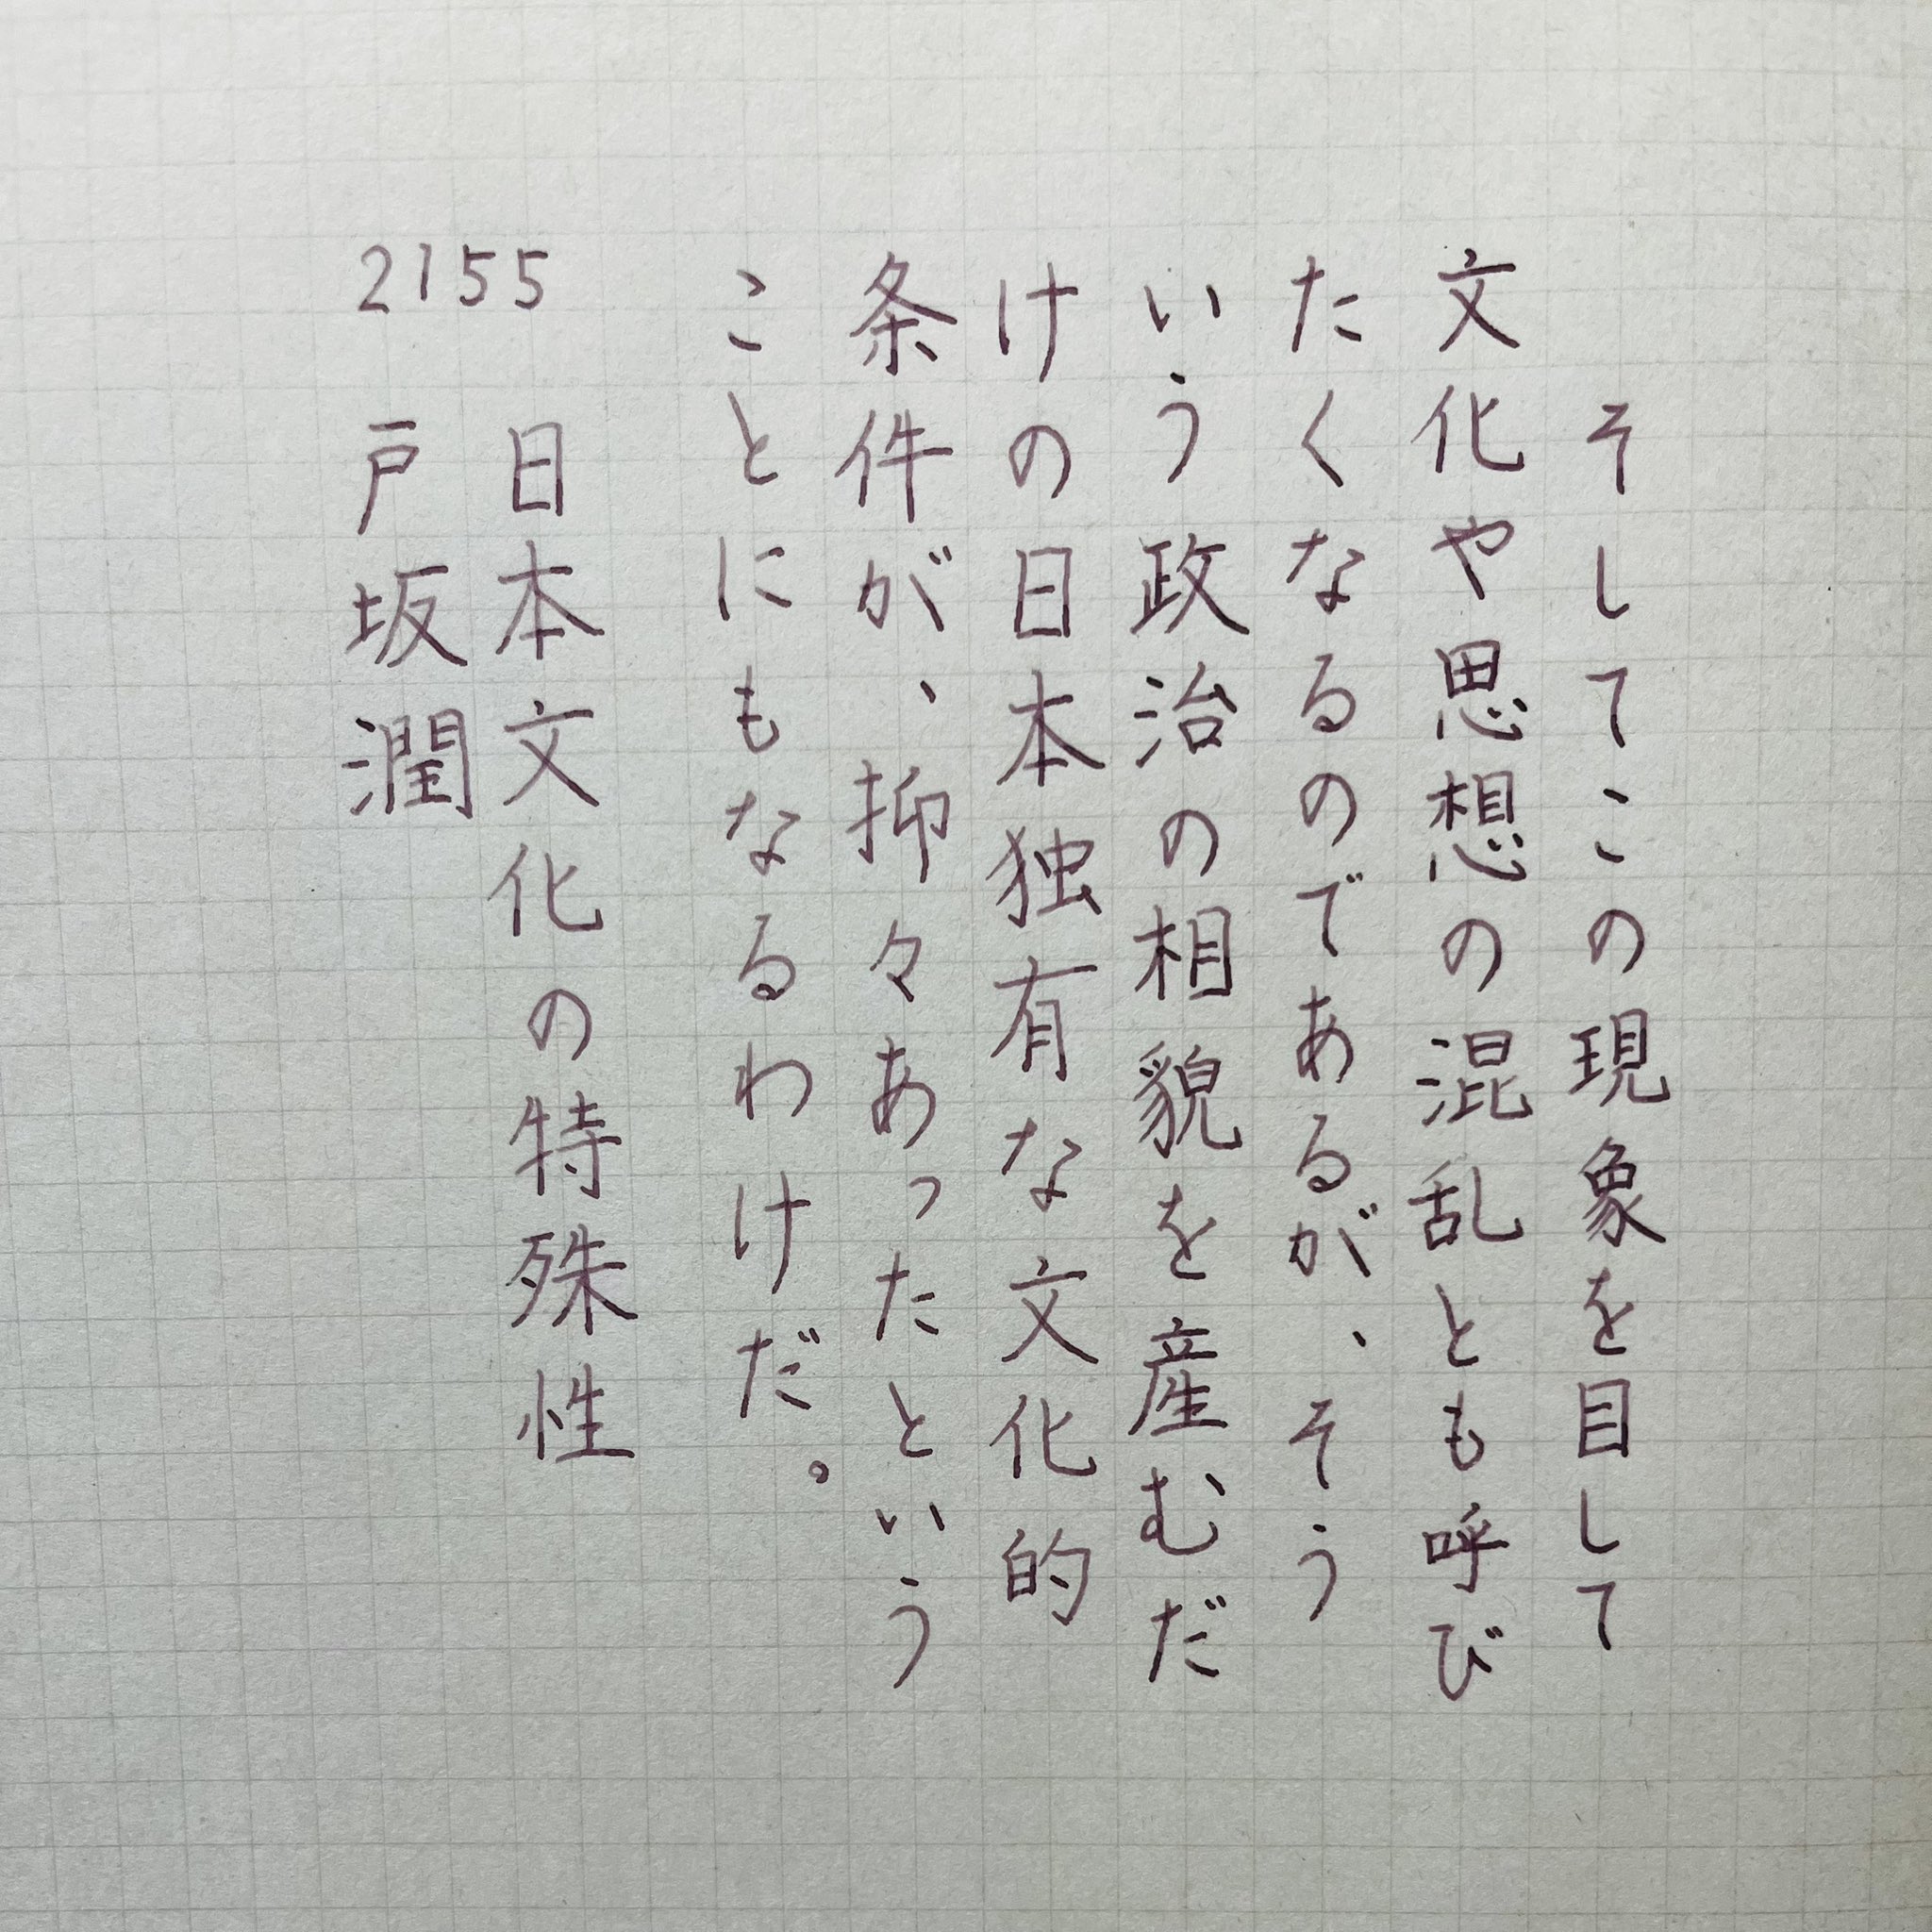 そしてこの現象を目して
文化や思想の混乱とも呼び
たくなるのであるが、そう
いう政治の相貌を産むだ
けの日本独有な文化的
条件が、抑々あったという
ことにもなるわけだ。
2155
日本文化の特殊性
戸坂潤